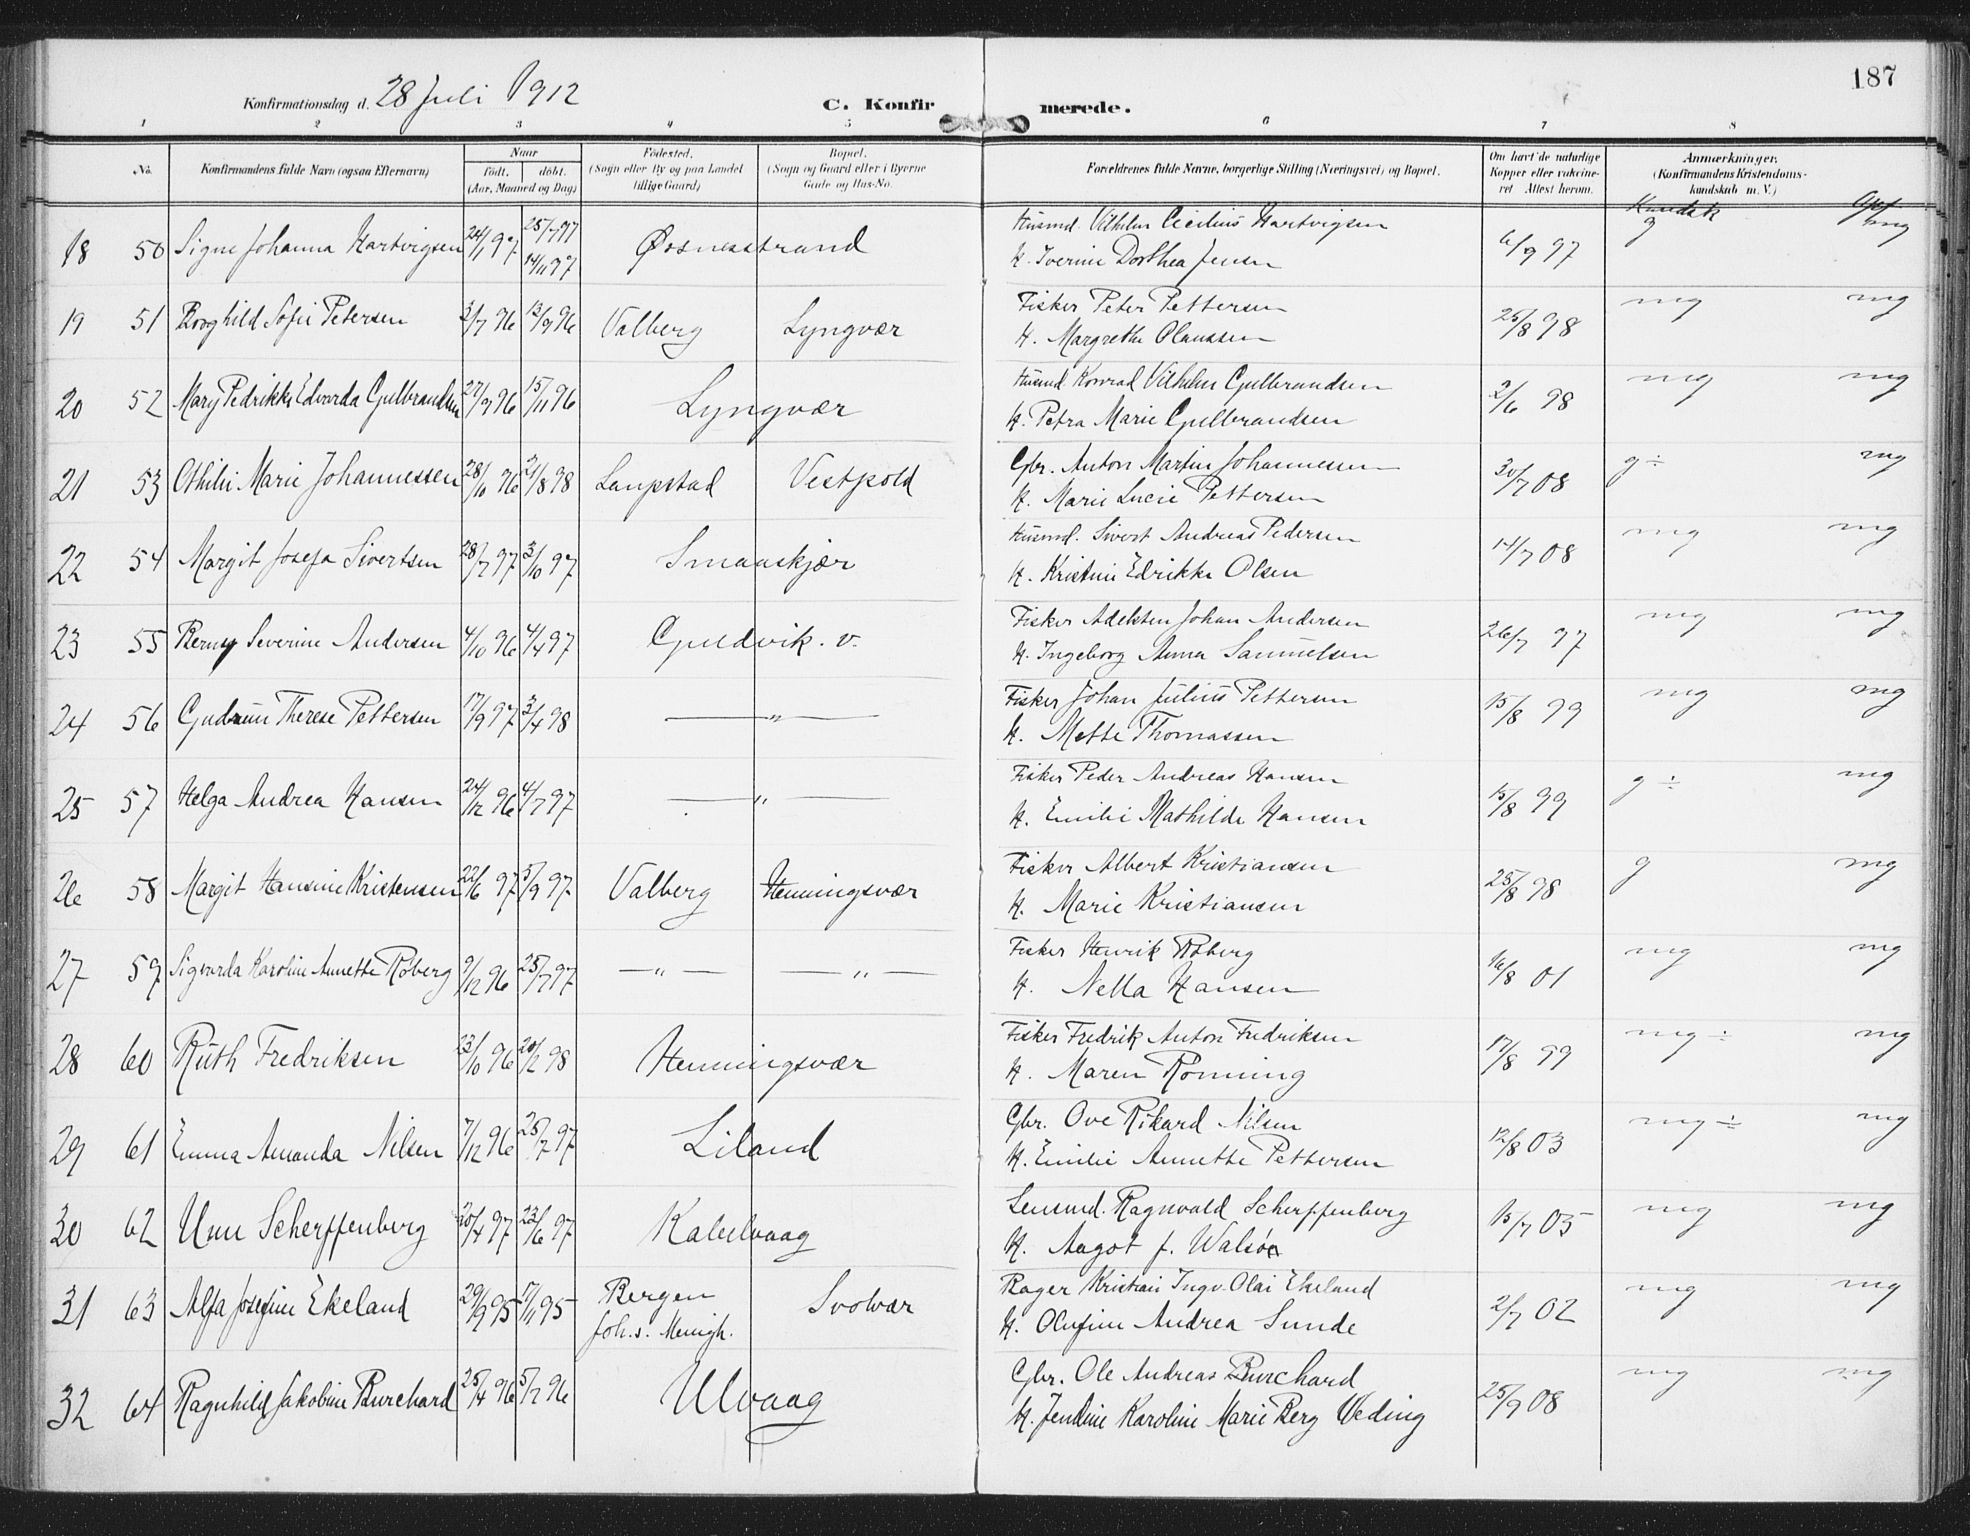 187
Konfirmationsdag d. 28 Juli 1912
C. Konfirmerede.
1 2 3 4 5 6 7 8
No. Konfirmandens fulde Navn (ogsaa Efternavn) Naar født. døbt. (Aar, Maaned og Dag) Fødested. (Sogn eller By og paa Landet tillige Gaard) Bopæl. (Sogn og Gaard eller i Byerne Gade og Hus-No. Forældrenes fulde Navne, borgerlige Stilling (Næringsvei) og Bopæl. Om havt de naturlige Kopper eller vaccineret Attest herom. Anmærkninger. (Konfirmandens Kristendomskundskab m. V.)
Kundsk Opf
18 50 Signe Johanna Hartvigsen 24/1 97 25/7 97 14/11 97 Øosnesstrand Husmd. Vilhelm Cecilius Hartvigsen 6/9 97 g mg
H. Iverine Dorthea Jensen
19 51 Borghild Sofie Petersen 3/7 96 13/9 96 Valberg Lyngvær Fisker Peter Pettersen 25/8 98 mg mg
H. Margrethe Olaussen
20 52 Mary Pedrikke Edvarda Gulbrandsen 27/9 96 15/11 96 Lyngvær Husmd Konrad Vilhelm Gulbrandsen 2/6 98 mg mg
H. Petra Marie Gulbrandsen
21 53 Othilie Marie Johannessen 28/10 96 21/8 98 Laupstad Vestpold Gbr. Anton Martin Johannessen 30/7 08 g ÷ mg
H. Marie Lucie Pettersen
22 54 Margit Josefa Sivertsen 28/7 97 3/10 97 Smaaskjær Husmd. Sivert Andreas Pedersen 14/7 08 mg mg
H. Kristine Edrikke Olsen
23 55 Berny Severine Andersen 4/10 96 4/4 97 Guldvik. v. Fisker Adelsten Johan Andersen 26/7 97 mg mg
H. Ingeborg Anna Samuelsen
24 56 Gudrun Therese Pettersen 17/9 97 3/4 98 — " — Fisker Johan Julius Pettersen 15/8 99 mg mg
H. Mette Thomassen
25 57 Helga Andrea Hansen 24/12 96 4/7 97 — " — Fisker Peder Andreas Hansen 15/8 99 g ÷ mg
H. Emilie Mathilde Hansen
26 58 Margit Hansine Kristensen 22/6 97 5/9 97 Valberg Henningsvær Fisker Albert Kristiansen 25/8 98 g mg
H. Marie Kristiansen
27 59 Sigvarda Karoline Annette Roberg 9/12 96 25/7 97 — " — — " — Fisker Henrik Roberg 16/8 01 mg mg
H. Nella Hansen
28 60 Ruth Fredriksen 23/10 96 20/2 98 Henningsvær Fisker Fredrik Anton Fredriksen 17/8 99 mg ÷ mg
H. Maren Rönning
29 61 Emma Amanda Nilsen 7/12 96 25/7 97 Liland Gbr. Ove Rikard Nilsen 12/8 03 mg ÷ mg
H. Emilie Annette Pettersen
30 62 Unn Scherffenberg 20/4 97 23/6 97 Kabelvaag Lensmd. Ragnvald Scherffenberg 15/7 05 mg mg
H. Aagot f. Walsöe
31 63 Alfa Josefine Ekeland 29/9 95 17/11 95 Bergen Joh.s. Menigh. Svolvær Bager Kristian Ingv. Olai Ekeland 2/7 02 mg mg
H. Olufine Andrea Sunde
32 64 Ragnhild Jakobine Burchard 25/4 96 5/7 96 Ulvaag Gbr. Ole Andreas Burchard 25/9 08 mg mg
H. Jendine Karoline Marie Berg Weding